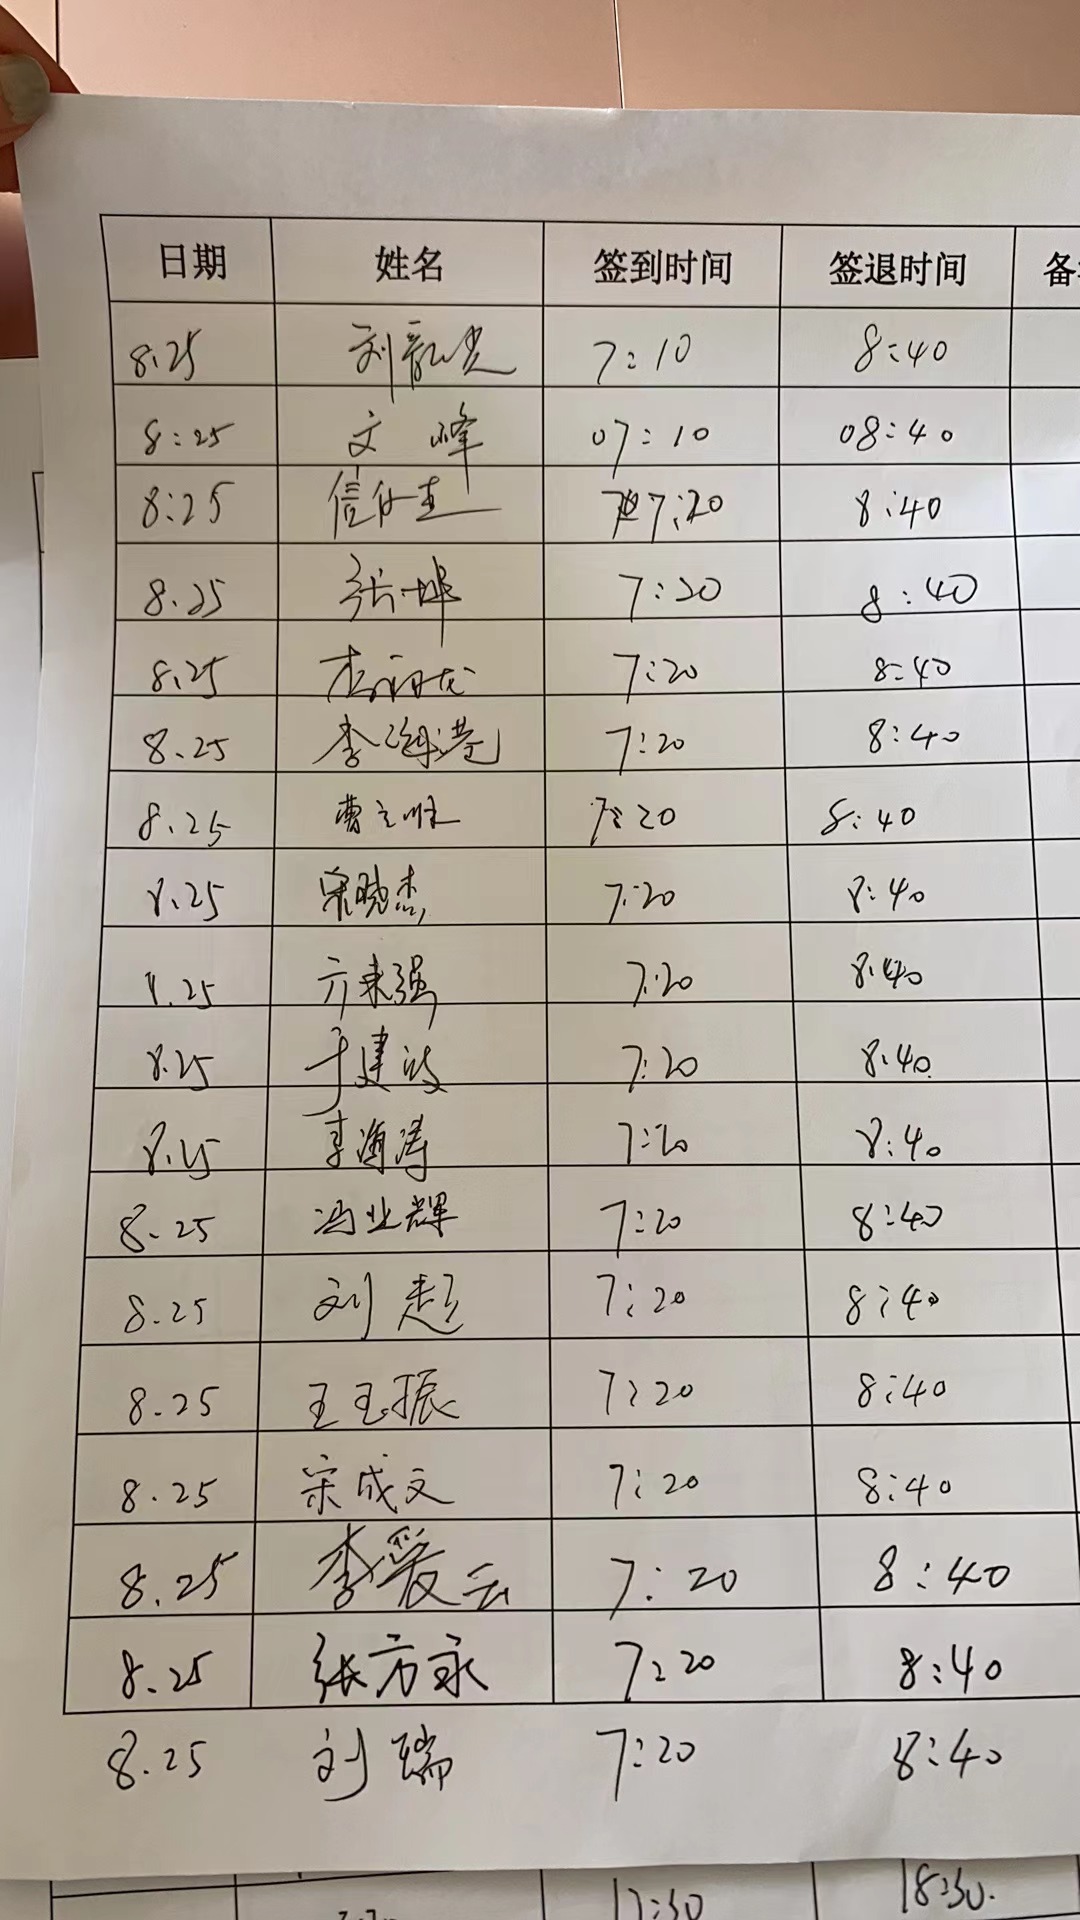 日期 姓名 签到时间 签退时间 备
8.25 刘 7:10 8:40
8:25 文峰 07:10 08:40
8:25 信 7:20 8:40
8.25 张 7:20 8:40
8.25 7:20 8:40
8.25 李海港 7:20 8:40
8.25 曹立 7:20 8:40
8.25 宋晓杰 7:20 8:40
8.25 亓来强 7:20 8:40
8.25 于建波 7:20 8:40
8.25 李海涛 7:20 8:40
8.25 冯业辉 7:20 8:40
8.25 刘超 7:20 8:40
8.25 王玉振 7:20 8:40
8.25 宋成文 7:20 8:40
8.25 李爱云 7:20 8:40
8.25 张方永 7:20 8:40
8.25 刘瑞 7:20 8:40
17:30 18:30.